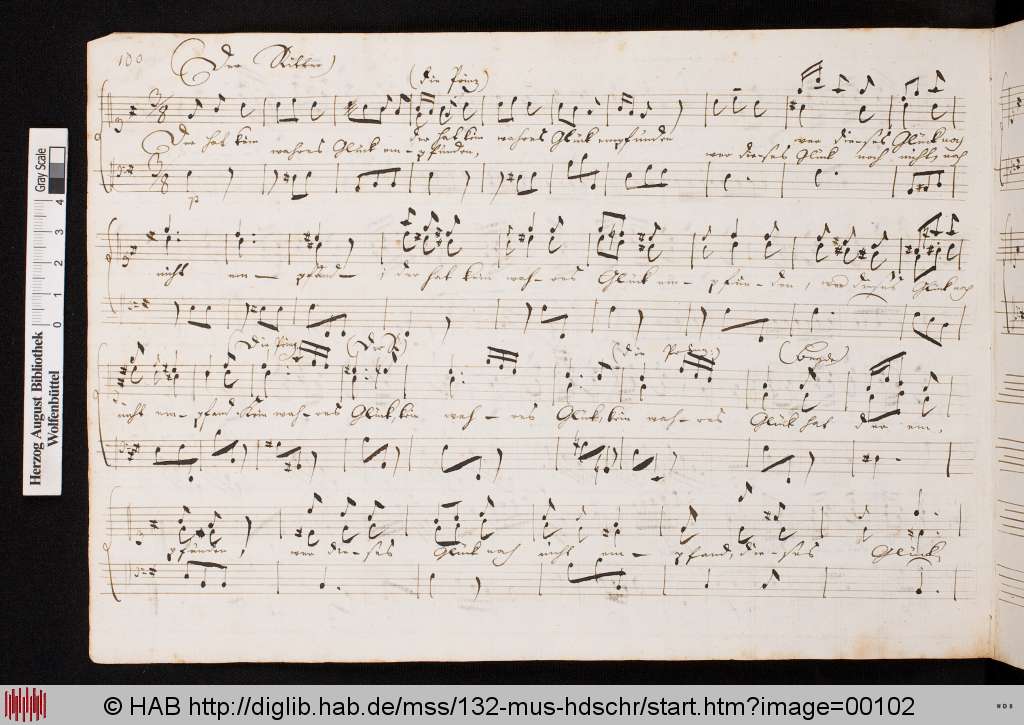 100 Der Ritter
(die Prinz)
Der hat kein wahres Glück em- pfunden, der hat kein wahres Glück empfunden wer dieses Glück noch
wer dieses Glück noch nicht, noch
p
nicht em- pfand, der hat kein wah- res Glück em- pfun- den, wer dieses Glück noch
nicht em- pfand. Kein wah- res Glück, kein wah- res Glück, kein wah- res Glück hat der em-
(Beyde)
pfunden, wer die- ses Glück noch nicht em- pfand, die- ses Glück
Herzog August Bibliothek
Wolfenbüttel
0 1 2 3 4
Gray Scale
© HAB http://diglib.hab.de/mss/132-mus-hdschr/start.htm?image=00102